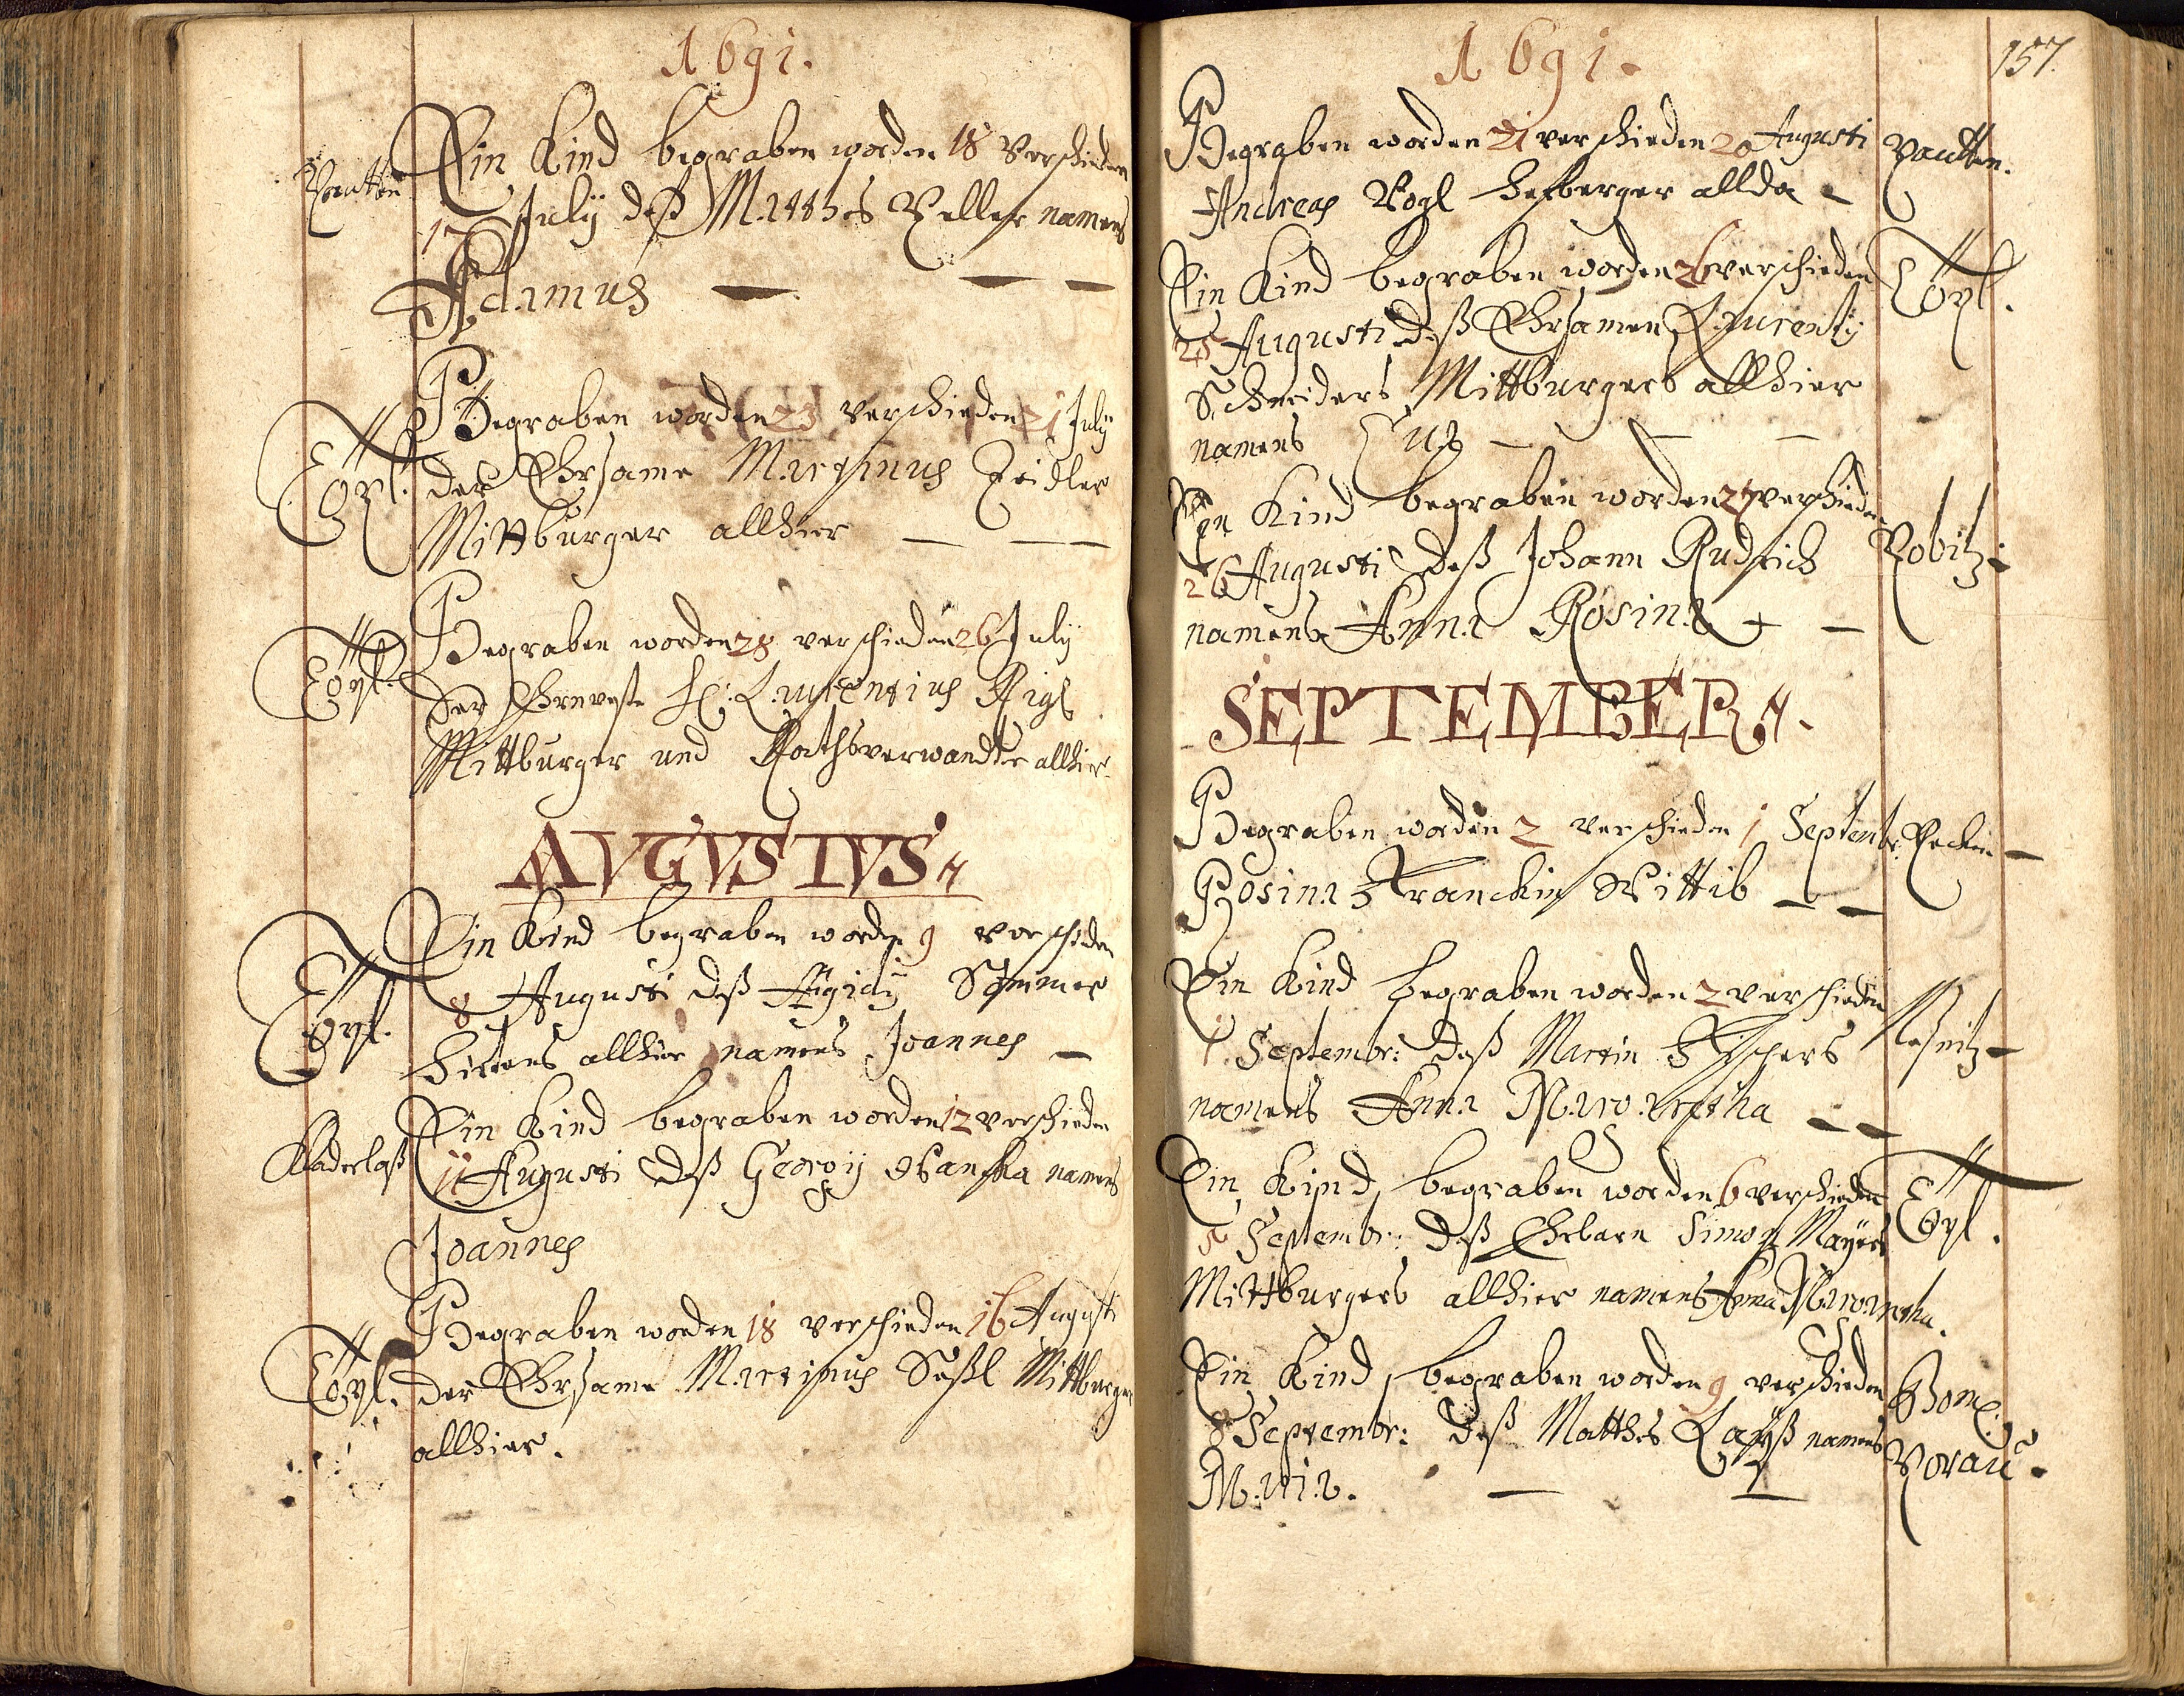 1691.
Ein Kind begraben worden 18 Verschieden
17 July deß Matthes Veller namens
Adamus
Begraben worden 23 verschieden 21 July
Töpl. der Ehrsame Martinus Zeidler
Mittburger allhier
Begraben worden 28 verschieden 26 July
Töpl. der Ehrnveste H: Laurentius Rigl
Mittburger und Rathsverwandter allhier.
AUGUSTUS.
Ein Kind begraben worden 9 verschiden
Töpl. 8 Augusti deß Ægidy Sommer
Hirtens allhier namens Joannes
Ein Kind begraben worden 12 verschieden
11 Augusti deß Georgij namens
Joannes
Begraben worden 18 verschieden 16 Augusti
Töpl. der Ehrsame Martinus Seßl Mittburger
allhier.
1691.
157.
Begraben worden 21 verschieden 20 Augusti
Andreas Vogl Herberger allda
Ein Kind begraben worden 26 verschieden Töpl.
25 Augusti deß Ehrsamen Laurenty
Schneiders Mittburgers allhier
namens
Ein Kind begraben worden 27 verschieden
26 Augusti deß Johann Rudrich
namens Anna Rosina
SEPTEMBER.
Begraben worden 2 verschieden 1 Septembr:
Rosina Franckin Wittib
Ein Kind begraben worden 2 verschieden
1 Septembr: deß Martin Fischers
namens Anna Margaretha
Ein Kind begraben worden 6 verschieden Töpl.
5 Septembr: deß Ehrbarn Simon Mayers
Mittburgers allhier namens Anna Margaretha.
Ein Kind begraben worden 9 verschieden
8 Septembr: deß Matthes namens
Maria.